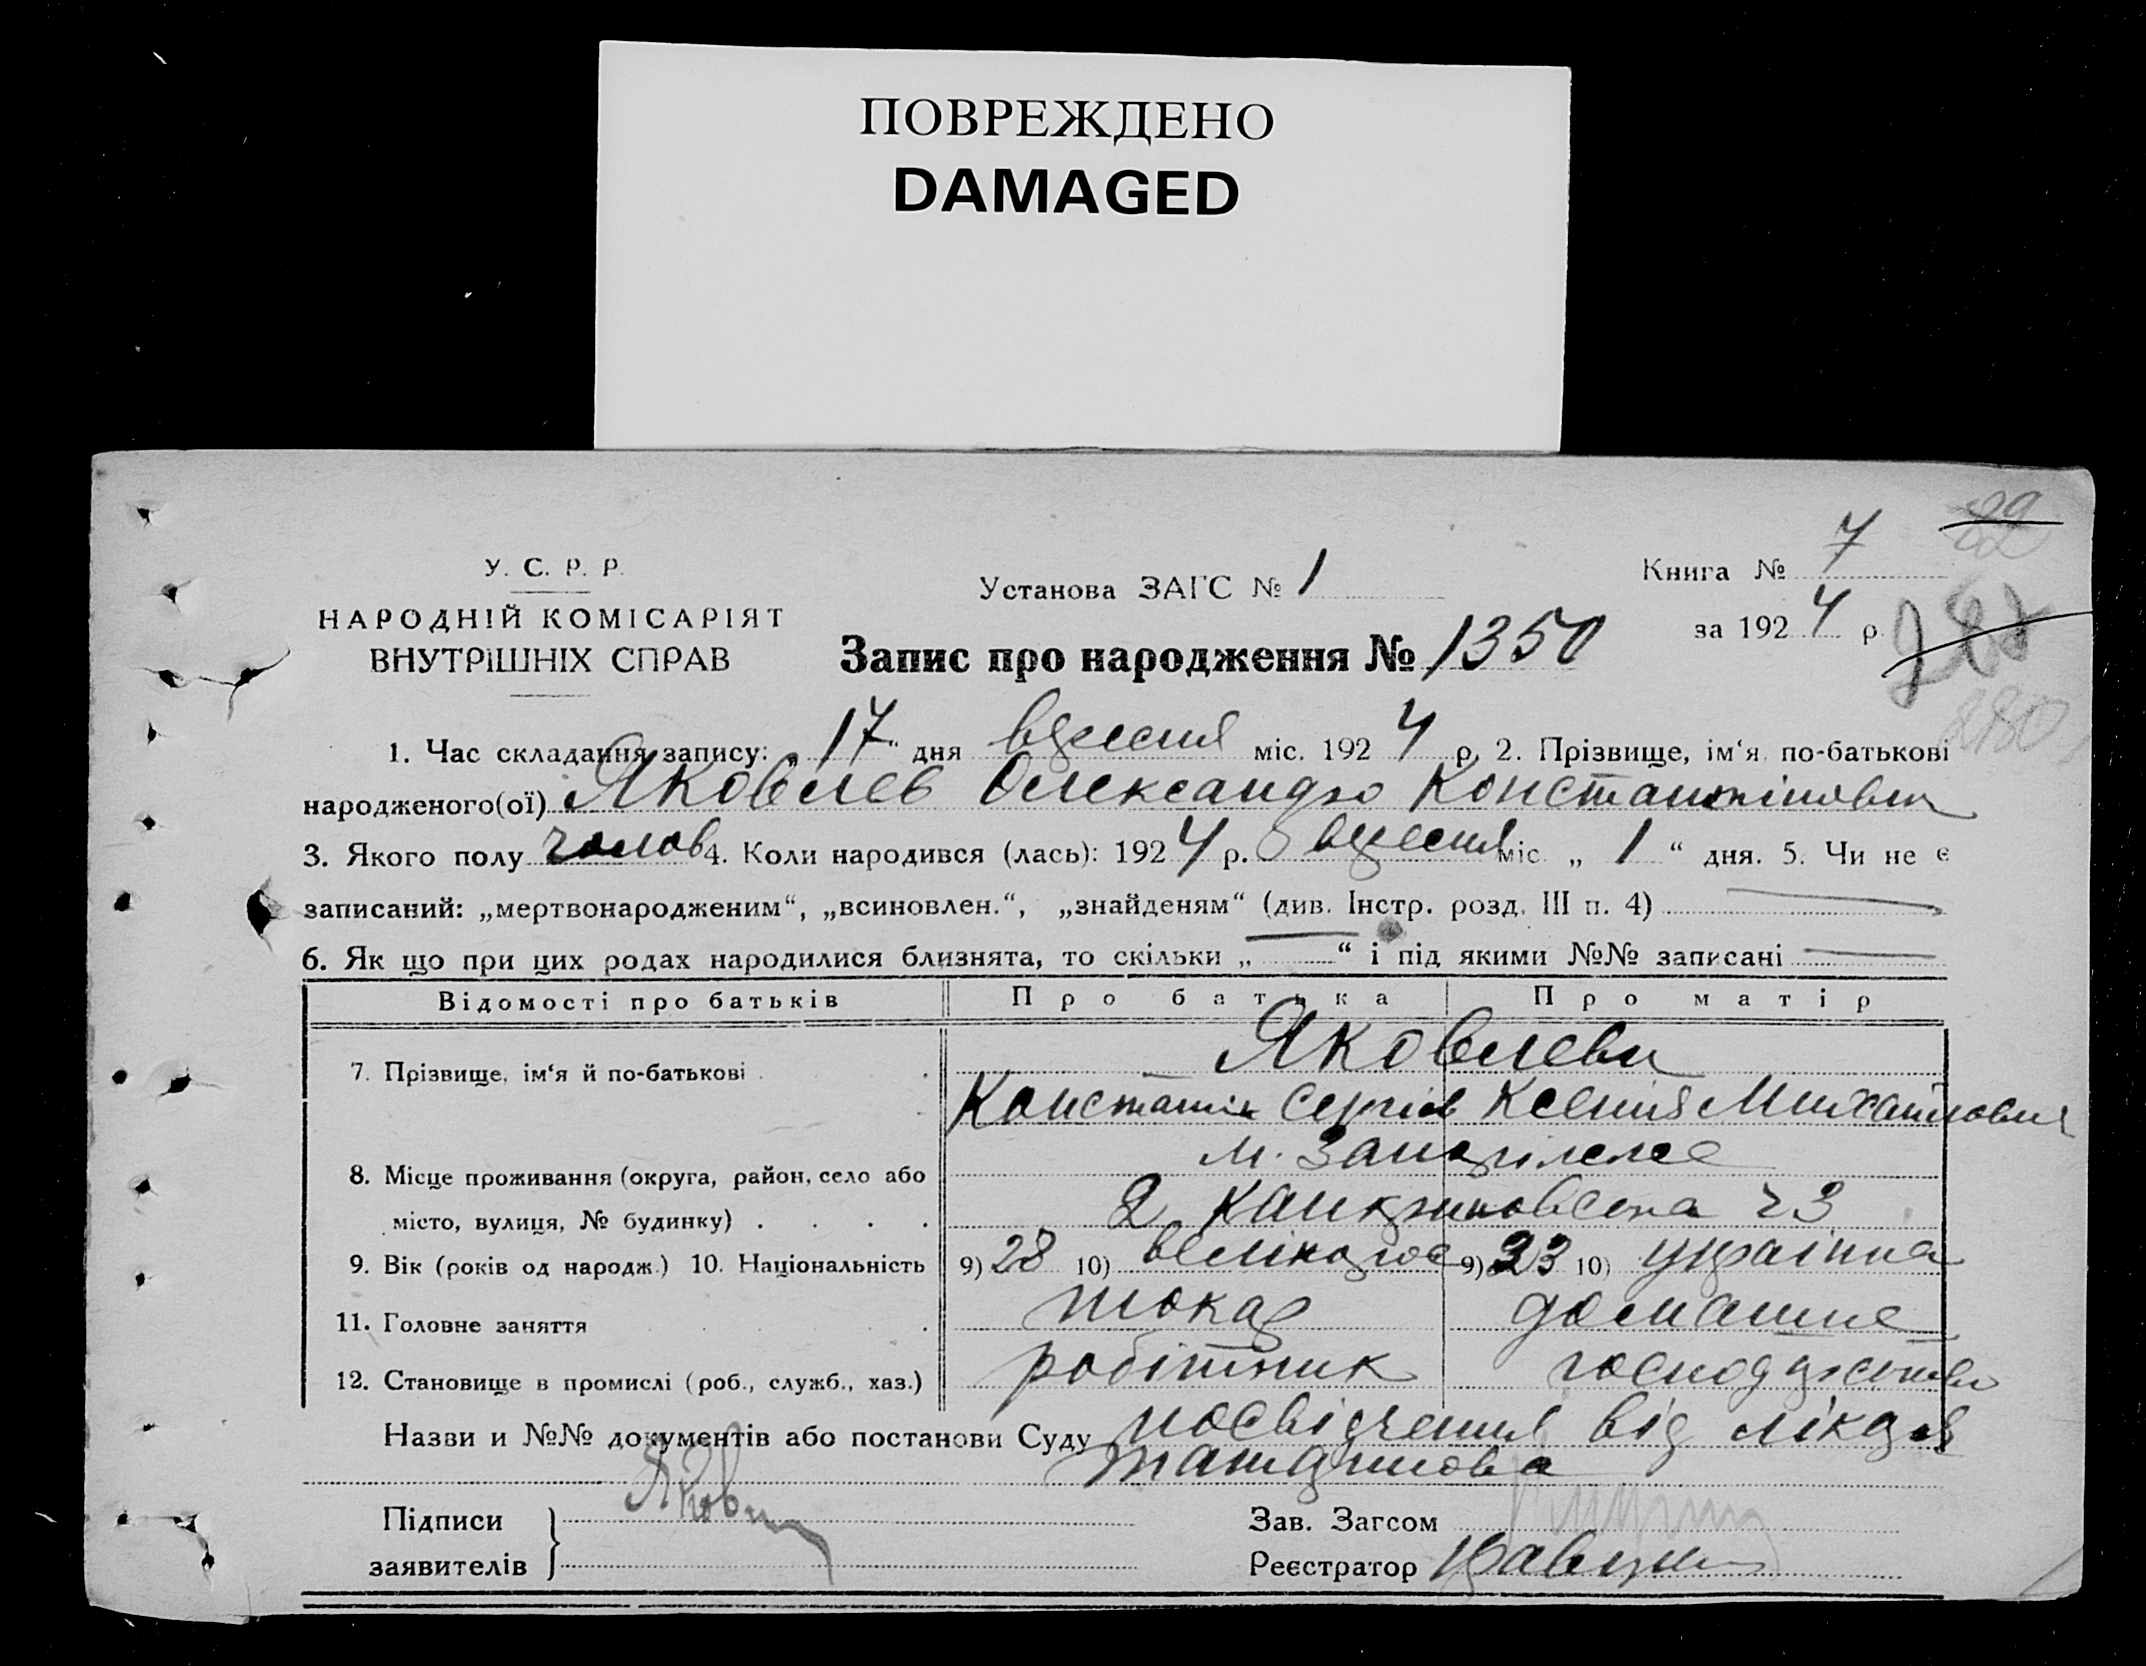 ПОВРЕЖДЕНО
DAMAGED
82
У. С. Р. Р.
НАРОДНІЙ КОМІСАРІЯТ
ВНУТРІШНІХ СПРАВ
Установа ЗАГС № 1
Книга № 7
за 1924 р.
280
Запис про народження № 1350
1. Час складання запису: 17 " дня вересня міс. 1924 р. 2. Прізвище, ім'я, по-батькові
народженого(ої) Яковлев Олександр Константінович
3. Якого полу чолов 4. Коли народився (лась): 1924 р. вересня міс. „ 1 " дня. 5. Чи не є
записаний: „мертвонародженим", „всиновлен.", „знайденям" (див. Інстр. розд. III п. 4)
6. Як що при цих родах народилися близнята, то скільки „ — " і під якими №№ записані —
Відомості про батьків Про батька Про матір
7. Прізвище, ім'я й по-батькові Яковлеви
Константін Сергіев Ксенія Михайловна
8. Місце проживання (округа, район, село або м. Запоріжжє
місто, вулиця, № будинку) 23
9. Вік (років од народж.) 10. Національність 9) 28 10) великорос 9) 23 10) українка
11. Головне заняття токар домашнє
12. Становище в промислі (роб., служб., хаз.) робітник господарство
Назви и №№ документів або постанови Суду посвідчення від лікаря
Підписи
заявителів
Зав. Загсом
Реєстратор